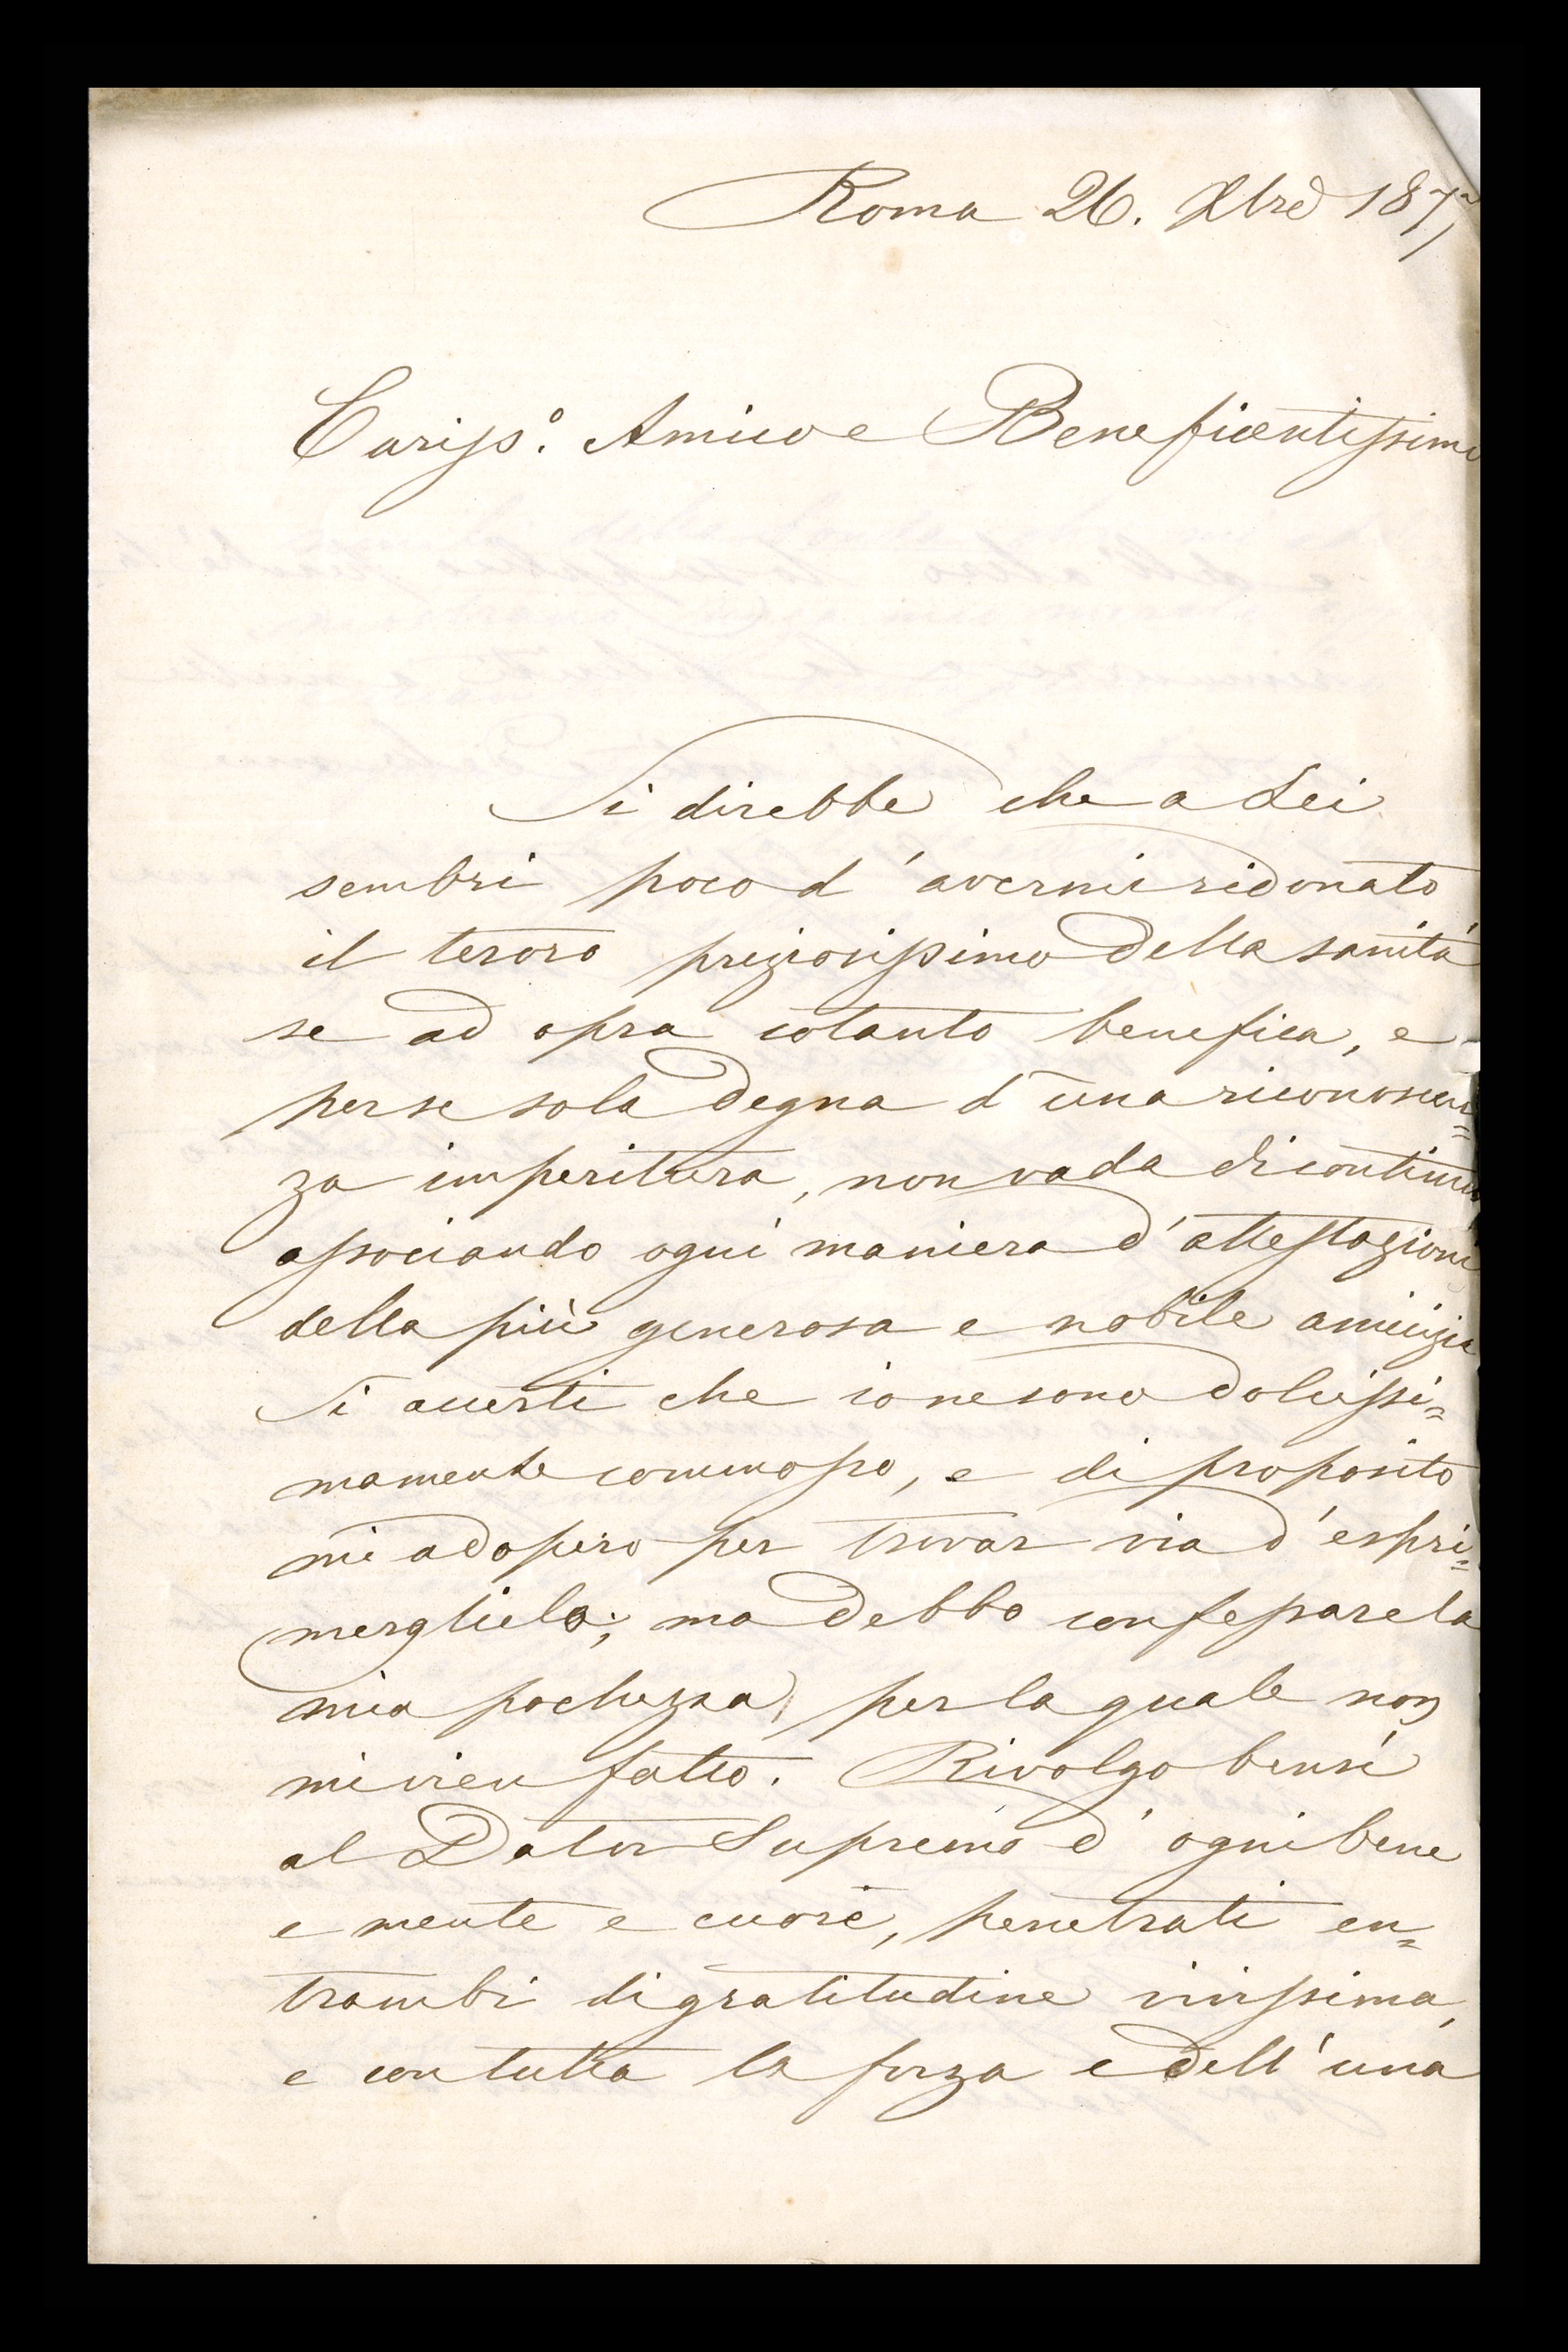 Roma 26. Xbre 187
Cariss.º Amico e Beneficentissimo
Si direbbe che a Lei
sembri poco d'avermi ridonato
il tesoro preziosissimo della sanità
se ad opra cotanto benefica, e
per se sola degna d'una riconoscen=
za imperitura, non vada di continuo
associando ogni maniera d'attestazioni
della più generosa e nobile amicizia
Si accerti che io ne sono dolcissi=
mamente commosso, e di proposito
mi adopero per trovar via d'espri=
merglielo; ma debbo confessare la
mia pochezza, per la quale non
mi vien fatto. Rivolgo bensì
al Dator Supremo d'ogni bene
e mente e cuore, penetrati en=
trambi di gratitudine vivissima,
e con tutta la forza e dell'una